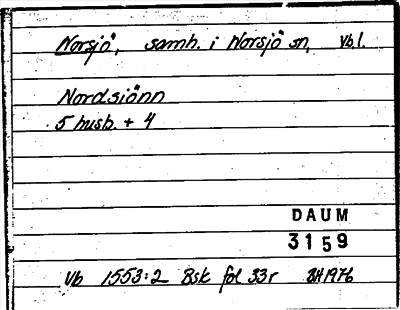 Norsjö, samh. i Norsjö sn, Vb.l.
Nordsiönn
5 husb. + 4
DAUM
3159
Vb 1553:2 Bsk fol 33r BH1976